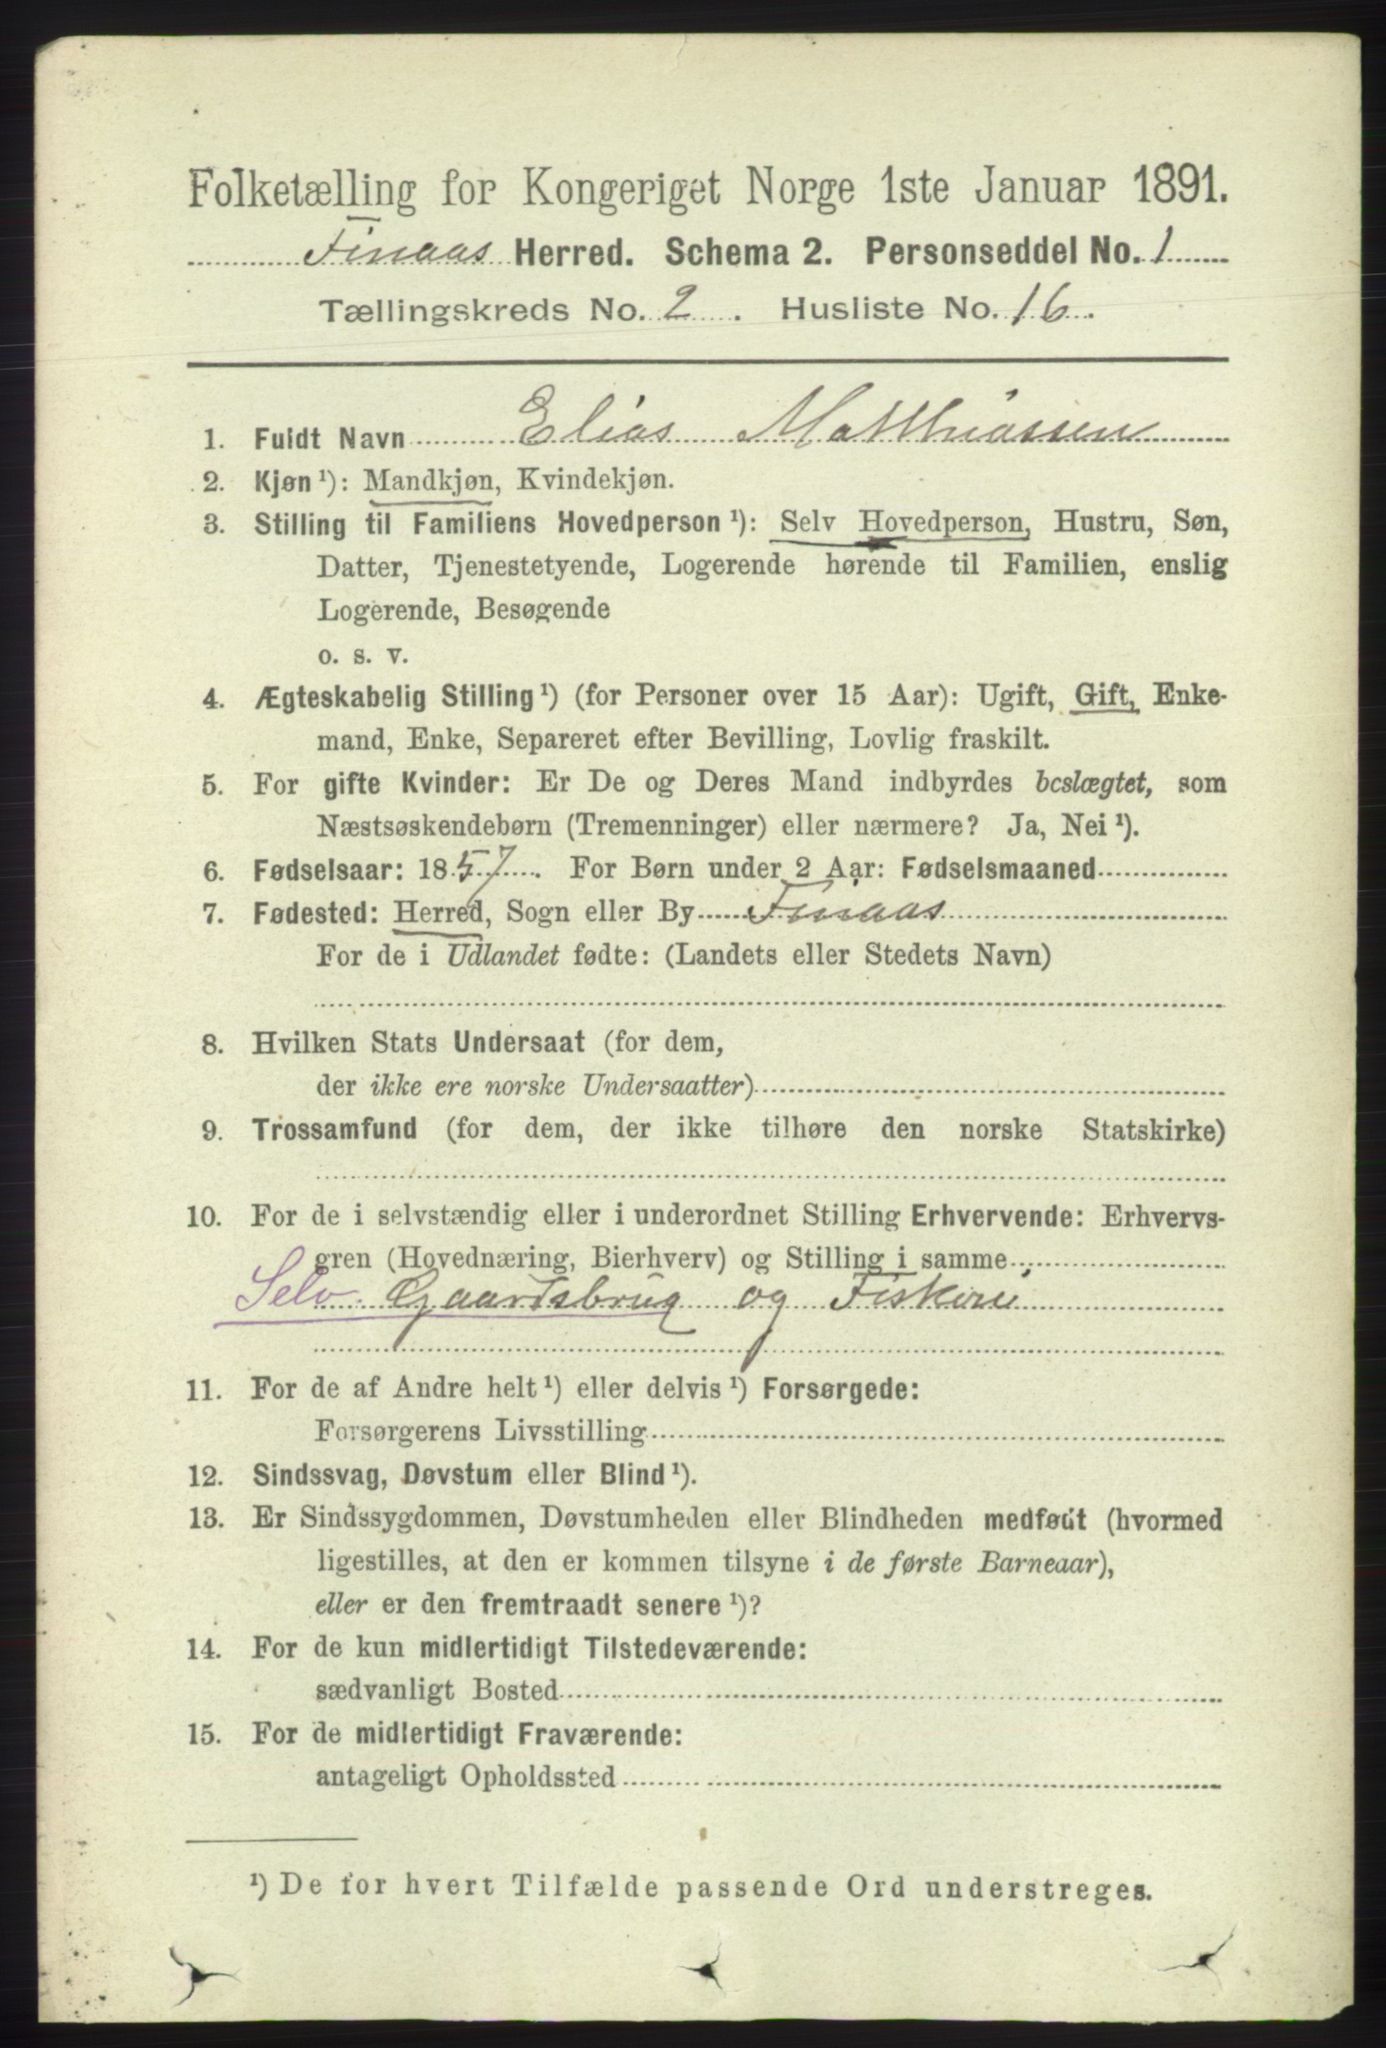 Folketælling for Kongeriget Norge 1ste Januar 1891.
Finaas Herred. Schema 2. Personseddel No. 1
Tællingskreds No. 2. Husliste No. 16.
1. Fuldt Navn Elias Matthiassen
2. Kjøn ¹): Mandkjøn, Kvindekjøn.
3. Stilling til Familiens Hovedperson ¹): Selv Hovedperson, Hustru, Søn,
Datter, Tjenestetyende, Logerende hørende til Familien, enslig
Logerende, Besøgende
o. s. v.
4. Ægteskabelig Stilling ¹) (for Personer over 15 Aar): Ugift, Gift, Enke-
mand, Enke, Separeret efter Bevilling, Lovlig fraskilt.
5. For gifte Kvinder: Er De og Deres Mand indbyrdes beslægtet, som
Næstsøskendebørn (Tremenninger) eller nærmere? Ja, Nei ¹).
6. Fødselsaar: 1857. For Børn under 2 Aar: Fødselsmaaned
7. Fødested: Herred, Sogn eller By Finaas
For de i Udlandet fødte: (Landets eller Stedets Navn)
8. Hvilken Stats Undersaat (for dem,
der ikke ere norske Undersaatter)
9. Trossamfund (for dem, der ikke tilhøre den norske Statskirke)
10. For de i selvstændig eller i underordnet Stilling Erhvervende: Erhvervs-
gren (Hovednæring, Bierhverv) og Stilling i samme
Selv. Gaardsbrug og Fiskeri
11. For de af Andre helt ¹) eller delvis ¹) Forsørgede:
Forsørgerens Livsstilling
12. Sindssvag, Døvstum eller Blind ¹).
13. Er Sindssygdommen, Døvstumheden eller Blindheden medfødt (hvormed
ligestilles, at den er kommen tilsyne i de første Barneaar),
eller er den fremtraadt senere ¹)?
14. For de kun midlertidigt Tilstedeværende:
sædvanligt Bosted
15. For de midlertidigt Fraværende:
antageligt Opholdssted
¹) De for hvert Tilfælde passende Ord understreges.